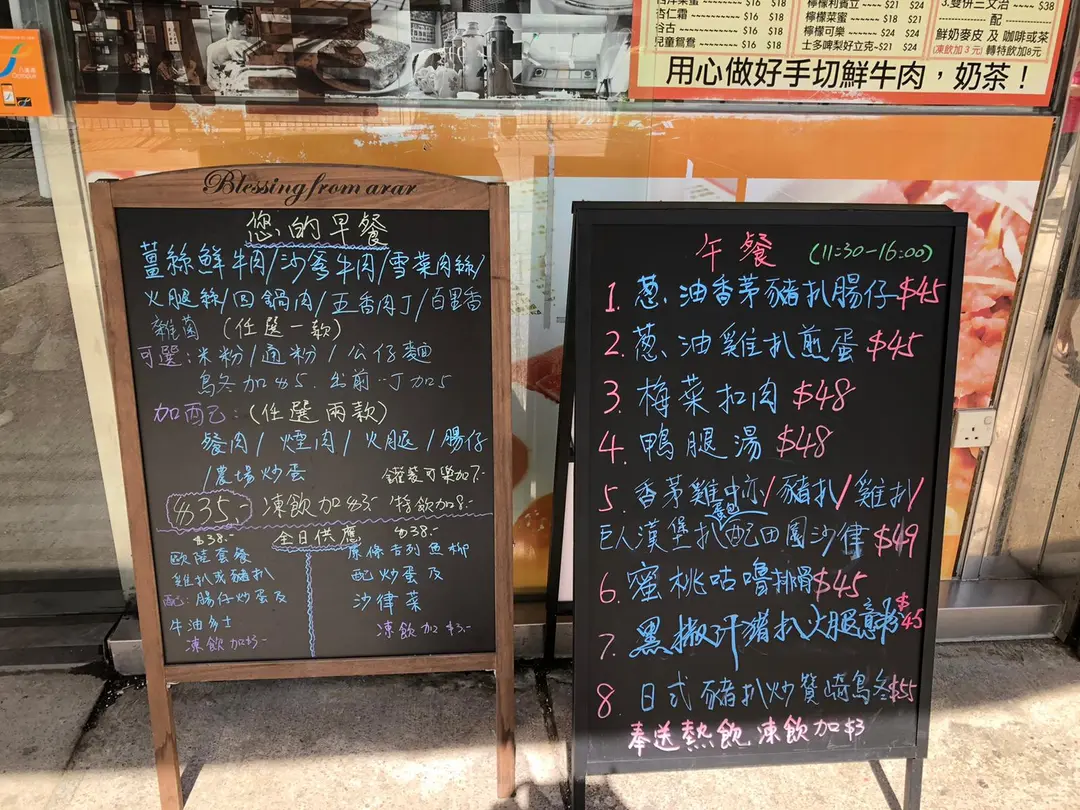 八達通
Octopus
杏仁霜 $16 $18
谷古 $16 $18
兒童鴛鴦 $16 $18
檸檬利賓立 $21 $24
檸檬菜蜜 $18 $21
檸檬可樂 $21 $24
士多啤梨好立克 $21 $24
3.雙併三文治 $38
配
鮮奶麥皮 及 咖啡或茶
(凍飲加3元) 轉特飲加8元
用心做好手切鮮牛肉，奶茶！
Blessing from arar
您的早餐
薑絲鮮牛肉/沙爹牛肉/雪菜肉絲/
火腿絲/回鍋肉/五香肉丁/百里香
雜菌 (任選一款)
可選:米粉/通粉/公仔麵
烏冬加$5. 出前一丁加5
加配:(任選兩款)
餐肉/煙肉/火腿/腸仔
/農場炒蛋
罐裝可樂加7.-
$35.- 凍飲加$3- 特飲加8.-
全日供應
$38.-
歐陸套餐
雞扒或豬扒
配:腸仔炒蛋及
牛油多士
凍飲加$3-
$38.-
吉列魚柳
配炒蛋及
沙律菜
凍飲加$3.-
午餐 (11:30-16:00)
1. 蔥油香茅豬扒腸仔$45
2. 蔥油雞扒煎蛋$45
3. 梅菜扣肉 $48
4. 鴨腿湯 $48
5. 香茅雞中亦/豬扒/雞扒/
巨人漢堡扒配田園沙律 $49
6. 蜜桃咕嚕排骨$45
7. 黑椒汁豬扒火腿意粉$45
8. 日式豬扒炒贊崎烏冬$55
奉送熱飲 凍飲加$3